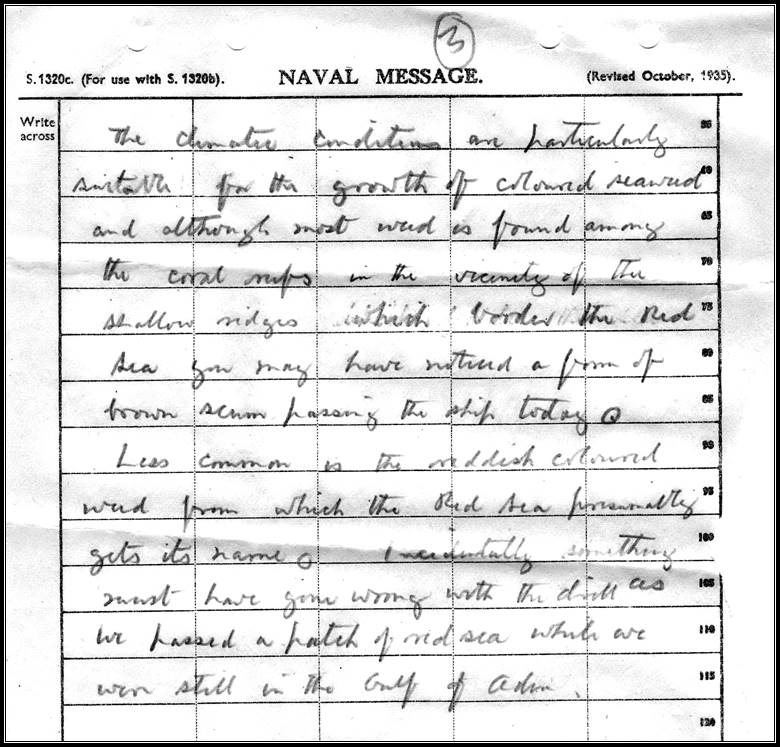 3
S.1320c. (For use with S. 1320b). NAVAL MESSAGE. (Revised October, 1935).
Write across
The climatic conditions are particularly 55
suitable for the growth of coloured seaweed 60
and although most weed is found among 65
the coral reefs in the vicinity of the 70
shallow ridges which border the Red 75
Sea you may have noticed a form of 80
brown scum passing the ship today O 85
Less common is the reddish coloured 90
weed from which the Red Sea presumably 95
gets its name O Incidentally something 100
must have gone wrong with the drill as 105
we passed a patch of red sea while we 110
were still in the Gulf of Aden. 115
120